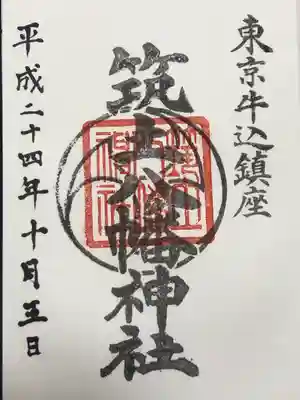 東京牛込鎮座
筑土八幡神社
平成二十四年十月五日